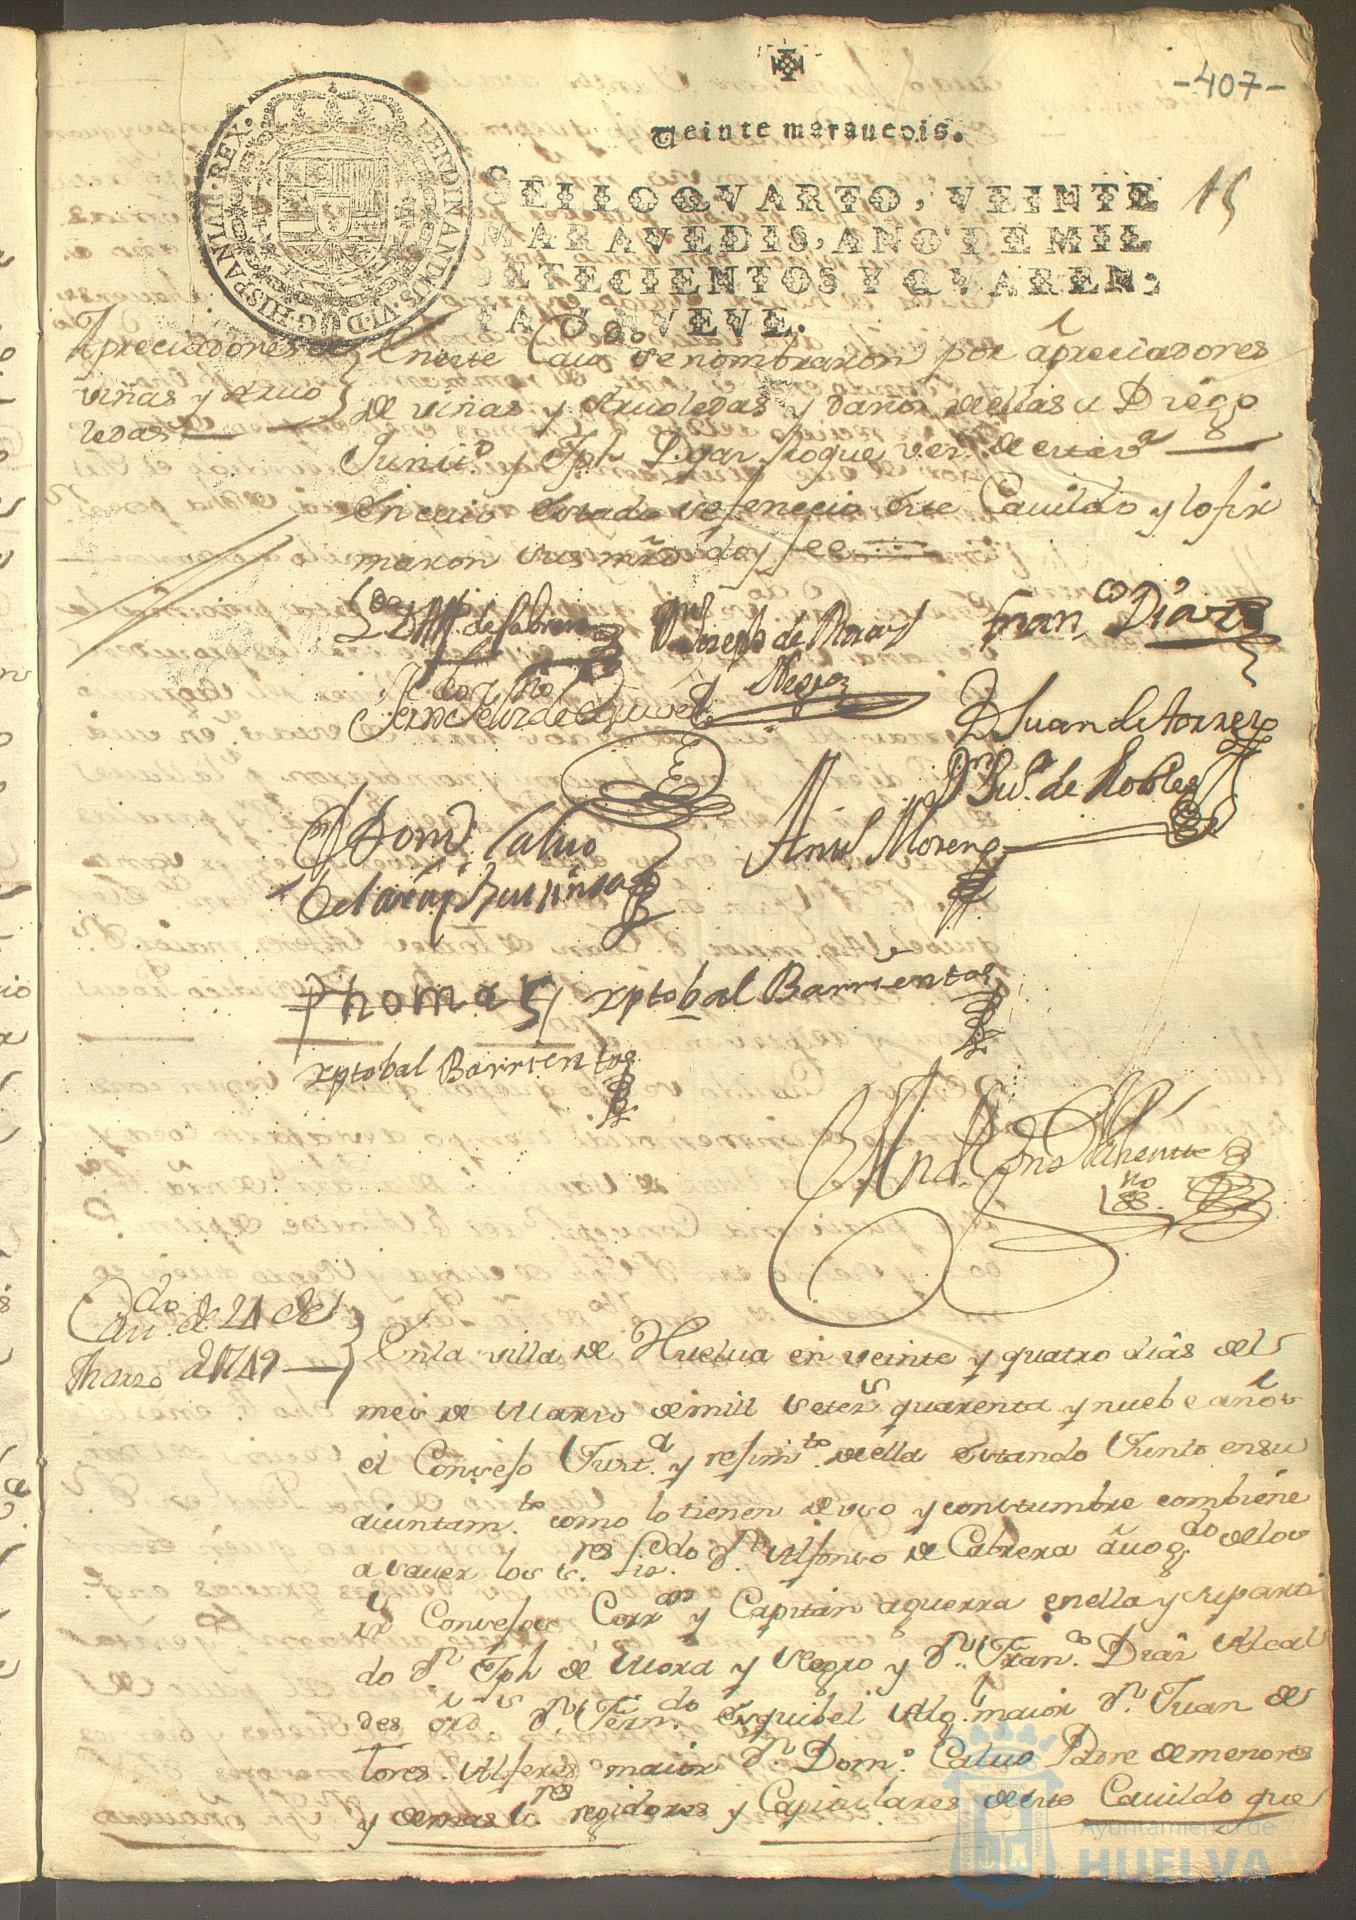 -407-
Veinte maravedis.
SELLO QVARTO, VEINTE
MARAVEDIS, AÑO DE MIL
SETECIENTOS Y QVAREN,
TA Y NVEVE.
15
FERDINANDUS·VI·D·G·HISPANIAR·REX·
Apreciadores de
viñas y Arvo
ledas
En este Cavdo se nombraron por apreciadores
de viñas y Arvoledas y daños de ellas a Diego
y Jph Roque vezs de esta va
En cuio estado se fenecio este Cavildo y lo fir
maron sus mrds doy fee
Ldo Dn Alf. de Cabrera
Dn Joseph de Mora y
Negro
Franco Diaz
D Juan de torres
Dn Juo. de Robles
Dn Domo Calvo
Anto Moreno
Thomas
xptobal Barrientos
xptobal Barrientos
Cavdo. de 24 de
Marzo de 1749
En la villa de Huelva en veinte y quatro dias del
mes de Marzo de mill setezs quarenta y nueb e años
el Consejo Justa. y rejimto. de ella estando Junto en su
aiuntamto. como lo tienen de uso y constumbre combiene
a saver los sres Lizdo. dn. Alfonso de Cabrera avogdo de los
Rs Consejos Corror y Capitan aguerra en ella y su parti
do dn Jph de Mora y Negro y dn. Franco. Diaz Alcal
des ordis. dn Ferndo. Esquibel Alg. maior dn. Juan de
Tores Alferes maior dn Domo. Calvo Padre de menores
y demas sres regidores y Capitulares de este Cavildo que
Ayuntamiento de
HUELVA